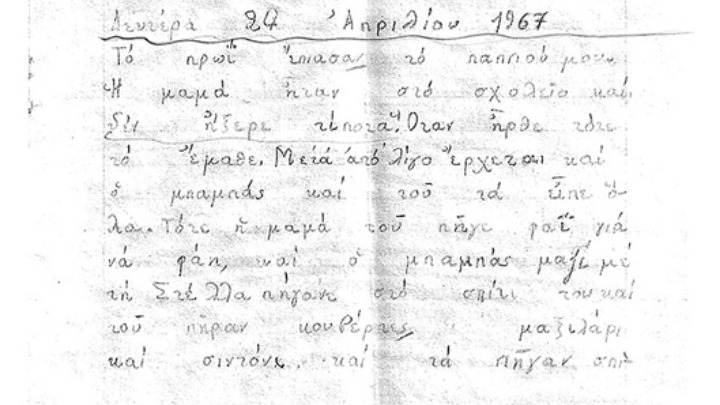 Δευτέρα 24 Ἀπριλίου 1967
Τό πρωΐ ἔπιασαν τό παππού μου.
Ἡ μαμά ἦταν στό σχολεῖο καί
δέν ἤξερε τίποτα. Ὅταν ἦρθε τότε
τό ἔμαθε. Μετά ἀπό λίγο ἔρχεται καί
ὁ μπαμπάς καί τοῦ τά εἶπε ὅ-
λα. Τότε ἡ μαμά τοῦ πῆγε φαΐ γιά
νά φάη, καί ὁ μπαμπάς μαζί μέ
τή Στέλλα πήγανε στό σπίτι του καί
τοῦ πῆραν κουβέρτες, μαξιλάρι
καί σιντόνι, καί τά πῆγαν σπι-